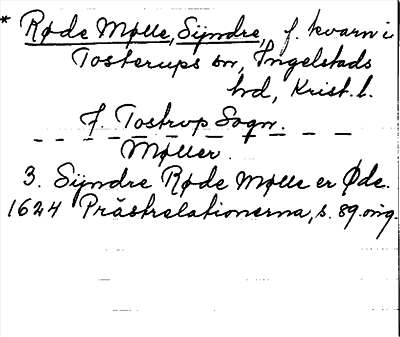 * Røde Mølle, Syndre, f. kvarn i
Tosterups sn, Ingelstads
hd, Krist. l.
f. Tostrup Sogn.
Møller.
3. Syndre Røde Mølle er Øde.
1624 Prästrelationerna, s. 89. orig.